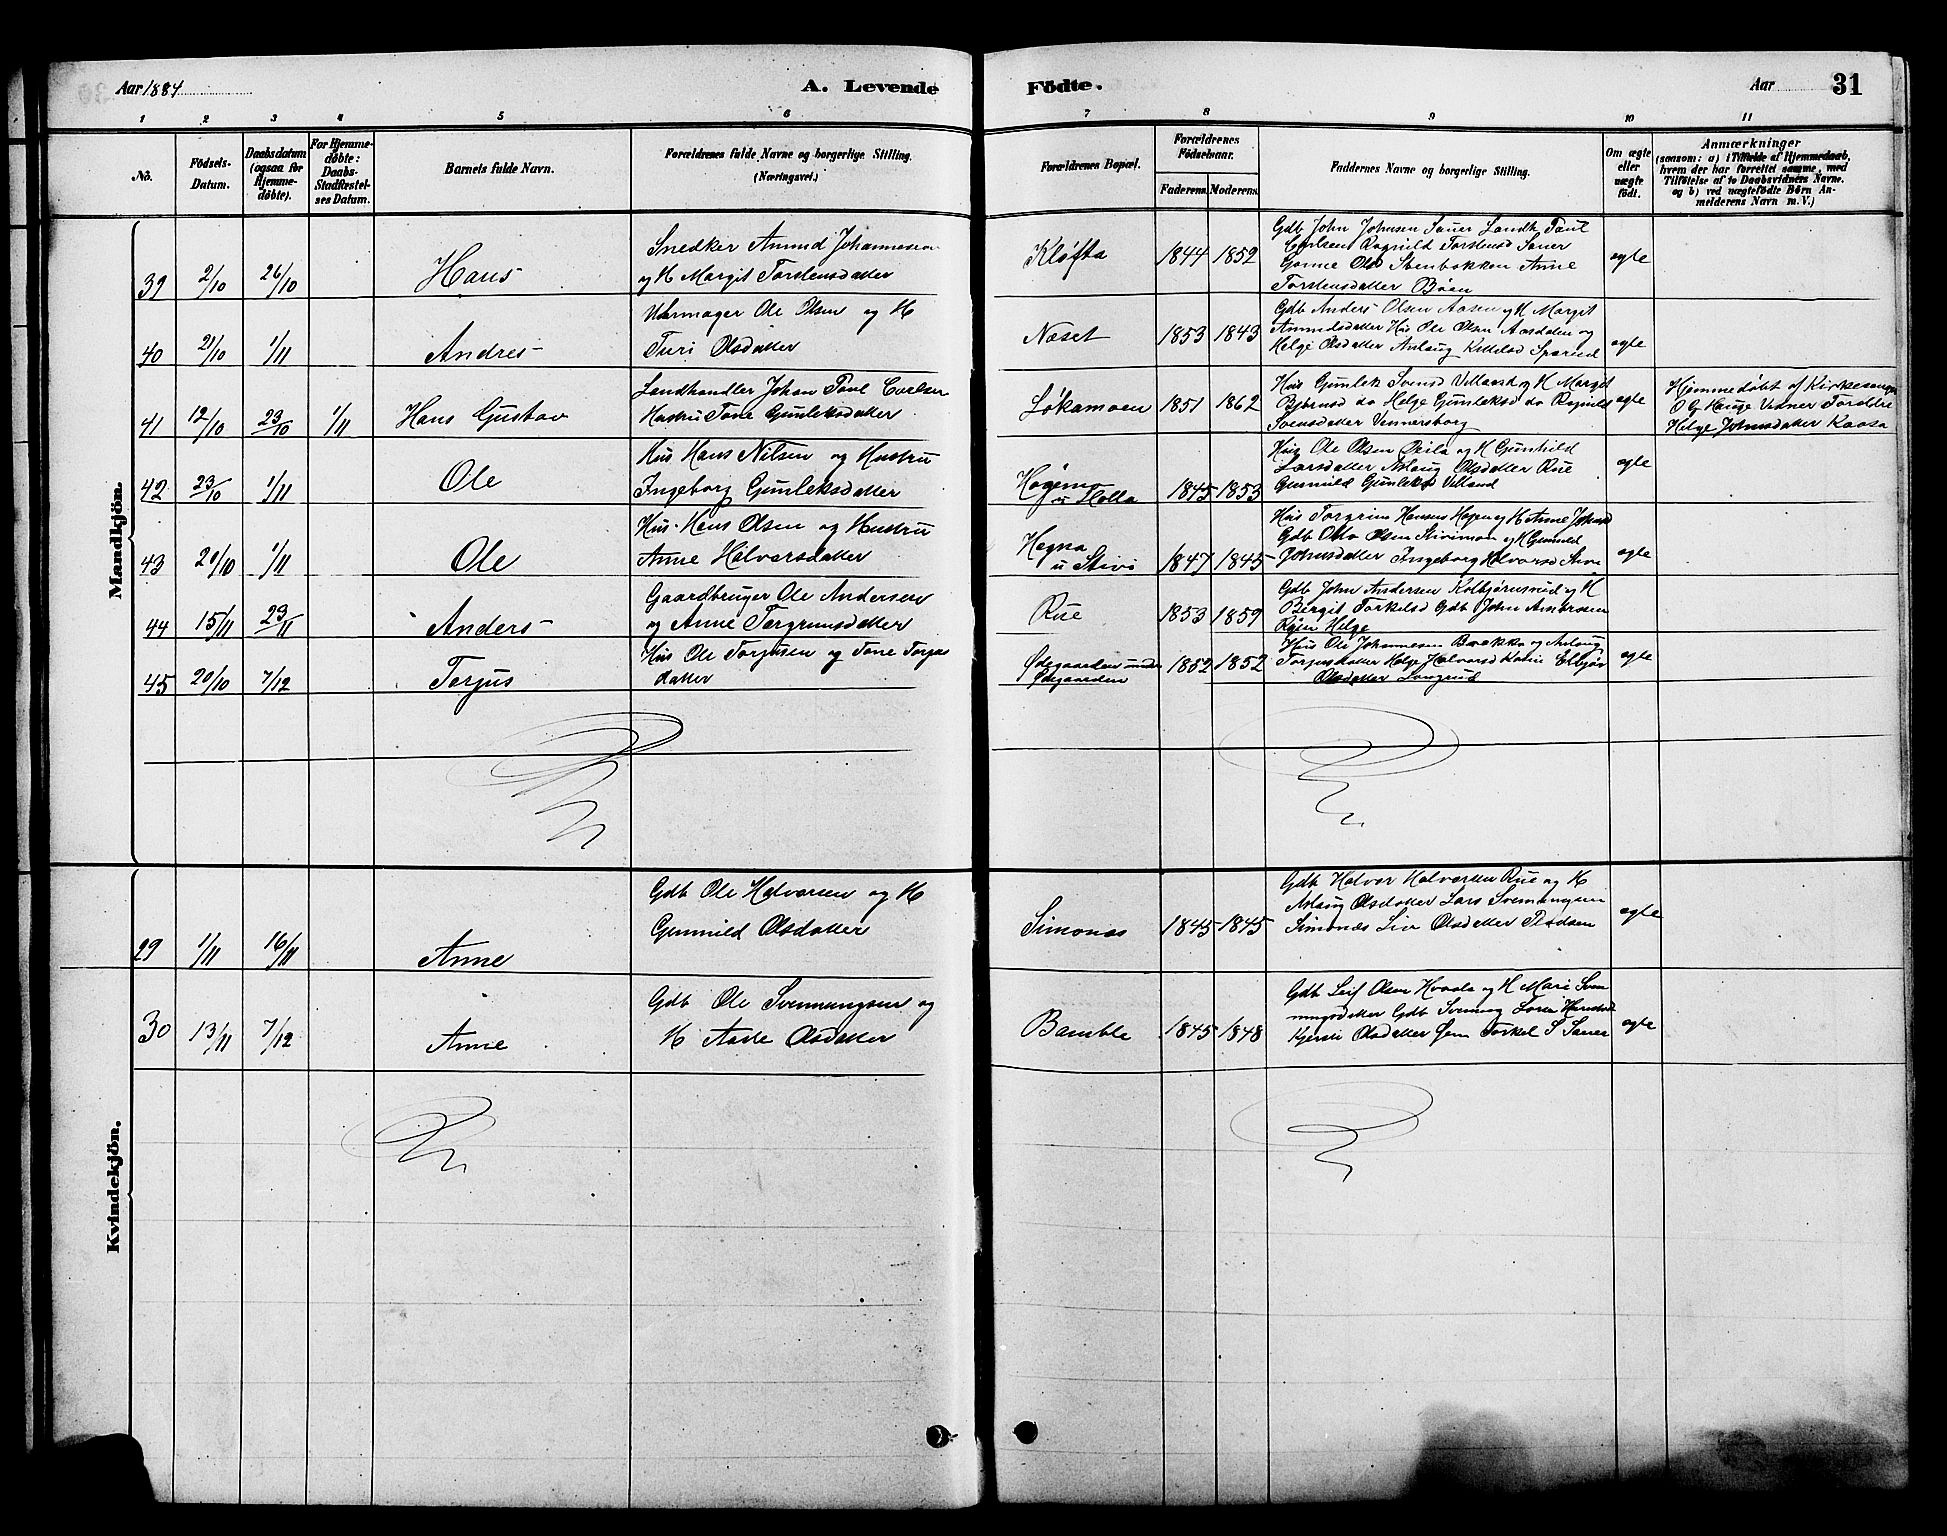 Aar 1884
A. Levende
Födte.
Aar
31
1 2 3 4 5 6 7 8 9 10 11
No.
Födsels-Datum.
Daabsdatum (ogsaa for Hjemme-döbte).
For Hjemme-döbte: Daabs-Stadfæstel-ses Datum.
Barnets fulde Navn.
Forældrenes fulde Navne og borgerlige Stilling.
(Næringsvei.)
Forældrenes Bopæl.
Forældrenes Födselsaar.
Faderens. Moderens.
Faddernes Navne og borgerlige Stilling.
Om ægte eller uægte födt.
Anmærkninger
(saasom: a) i Tilfælde af Hjemmedaab,
hvem der har forrettet samme, med
Tilföielse af to Daabsvidners Navne,
og b) ved uægtefödte Börn An-
melderens Navn m. V.)
Mandkjön.
39 2/10 26/10 Hans
Snedker Amund Johannesson
og H Margit Torstensdatter
Kløfta 1844 1852
Gdb John Johnsen Sauer Landh Poul
Evelsen Ragnild Torstensd Sauer
Gunne Olsd Stenbakken Anne
Torstensdatter Bøen
ægte
40 21/10 1/11 Andres
Uhrmager Ole Olsen og H
Turi Olsdatter
Næset 1853 1843
Gdb Anders Olsen Aasen og H Margit
Amundsdatter Hus Ole Olsen Aasdalen og
Helge Olsdatter Aslaug Kittelsd
ægte
41 12/10 23/10 1/11 Hans Gustav
Landhandler Johan Poul Evelsen
Hustru Tone Gunleksdatter
Løkamoen 1851 1862
Hus Gunlek Svensd Villand og H Margit
Bjørnsd do Helge Gunleksd do Ragnild
Svensdatter Vennersborg
ægte
Hjemmedøbt af Kirkesanger
O G Hauge Vidner Foreldre
Helge Johnsdatter Kaasa
42 23/10 1/11 Ole
Hus Hans Nilsen og Hustru
Ingeborg Gunleksdatter
Høgemo
u Holla
1845 1853
Hus Ole Olsen og H Gunhild
Larsdatter Aslaug Olsdatter Rue
Gunnild Gunleks Villand
ægte
43 20/10 1/11 Ole
Hus. Hans Olsen og Hustru
Anne Halvorsdatter
Hegna
u Stivi
1847 1845
Hus Torgrim Hansen Hagen og H Anne Johnsd
Gdb Olav Olsen Stivimoen og H Gunnild
Johnsdatter Ingeborg Halvorsd
ægte
44 15/11 23/11 Anders
Gaardbruger Ole Andersen
og Anne Torgrimsdatter
Rue 1853 1859
Gdb John Andersen Kolbjørnsrud og H
Bergit Torkelsd Gdb John
Helge
ægte
45 20/10 7/12 Torjus
Hus Ole Torjusen og Tone Torjus
datter
Ødegaarden under
Ødegaarden
1852 1852
Hus Ole Johannesen Bakka og Aslaug
Torjusdatter Helge Halvorsd
Olsdatter Langrud
ægte
Kvindekjön.
29 1/11 16/11 Anne
Gdb Ole Halvorsen og H
Gunnild Olsdatter
Simonæs 1845 1845
Gdb Halvor Halvorsen Rue og H
Aslaug Olsdatter Lars Svenungsen
Simonæs Liv Olsdatter
ægte
30 13/11 7/12 Anne
Gdb Ole Svennungsen og
H Aaste Olsdatter
Bamble 1845 1848
Gdb Leif Olsen Hvaala og H Mari Sven
nungsdatter Gdb Svenung
Kjersti Olsdatter Torkel S Sauer
ægte